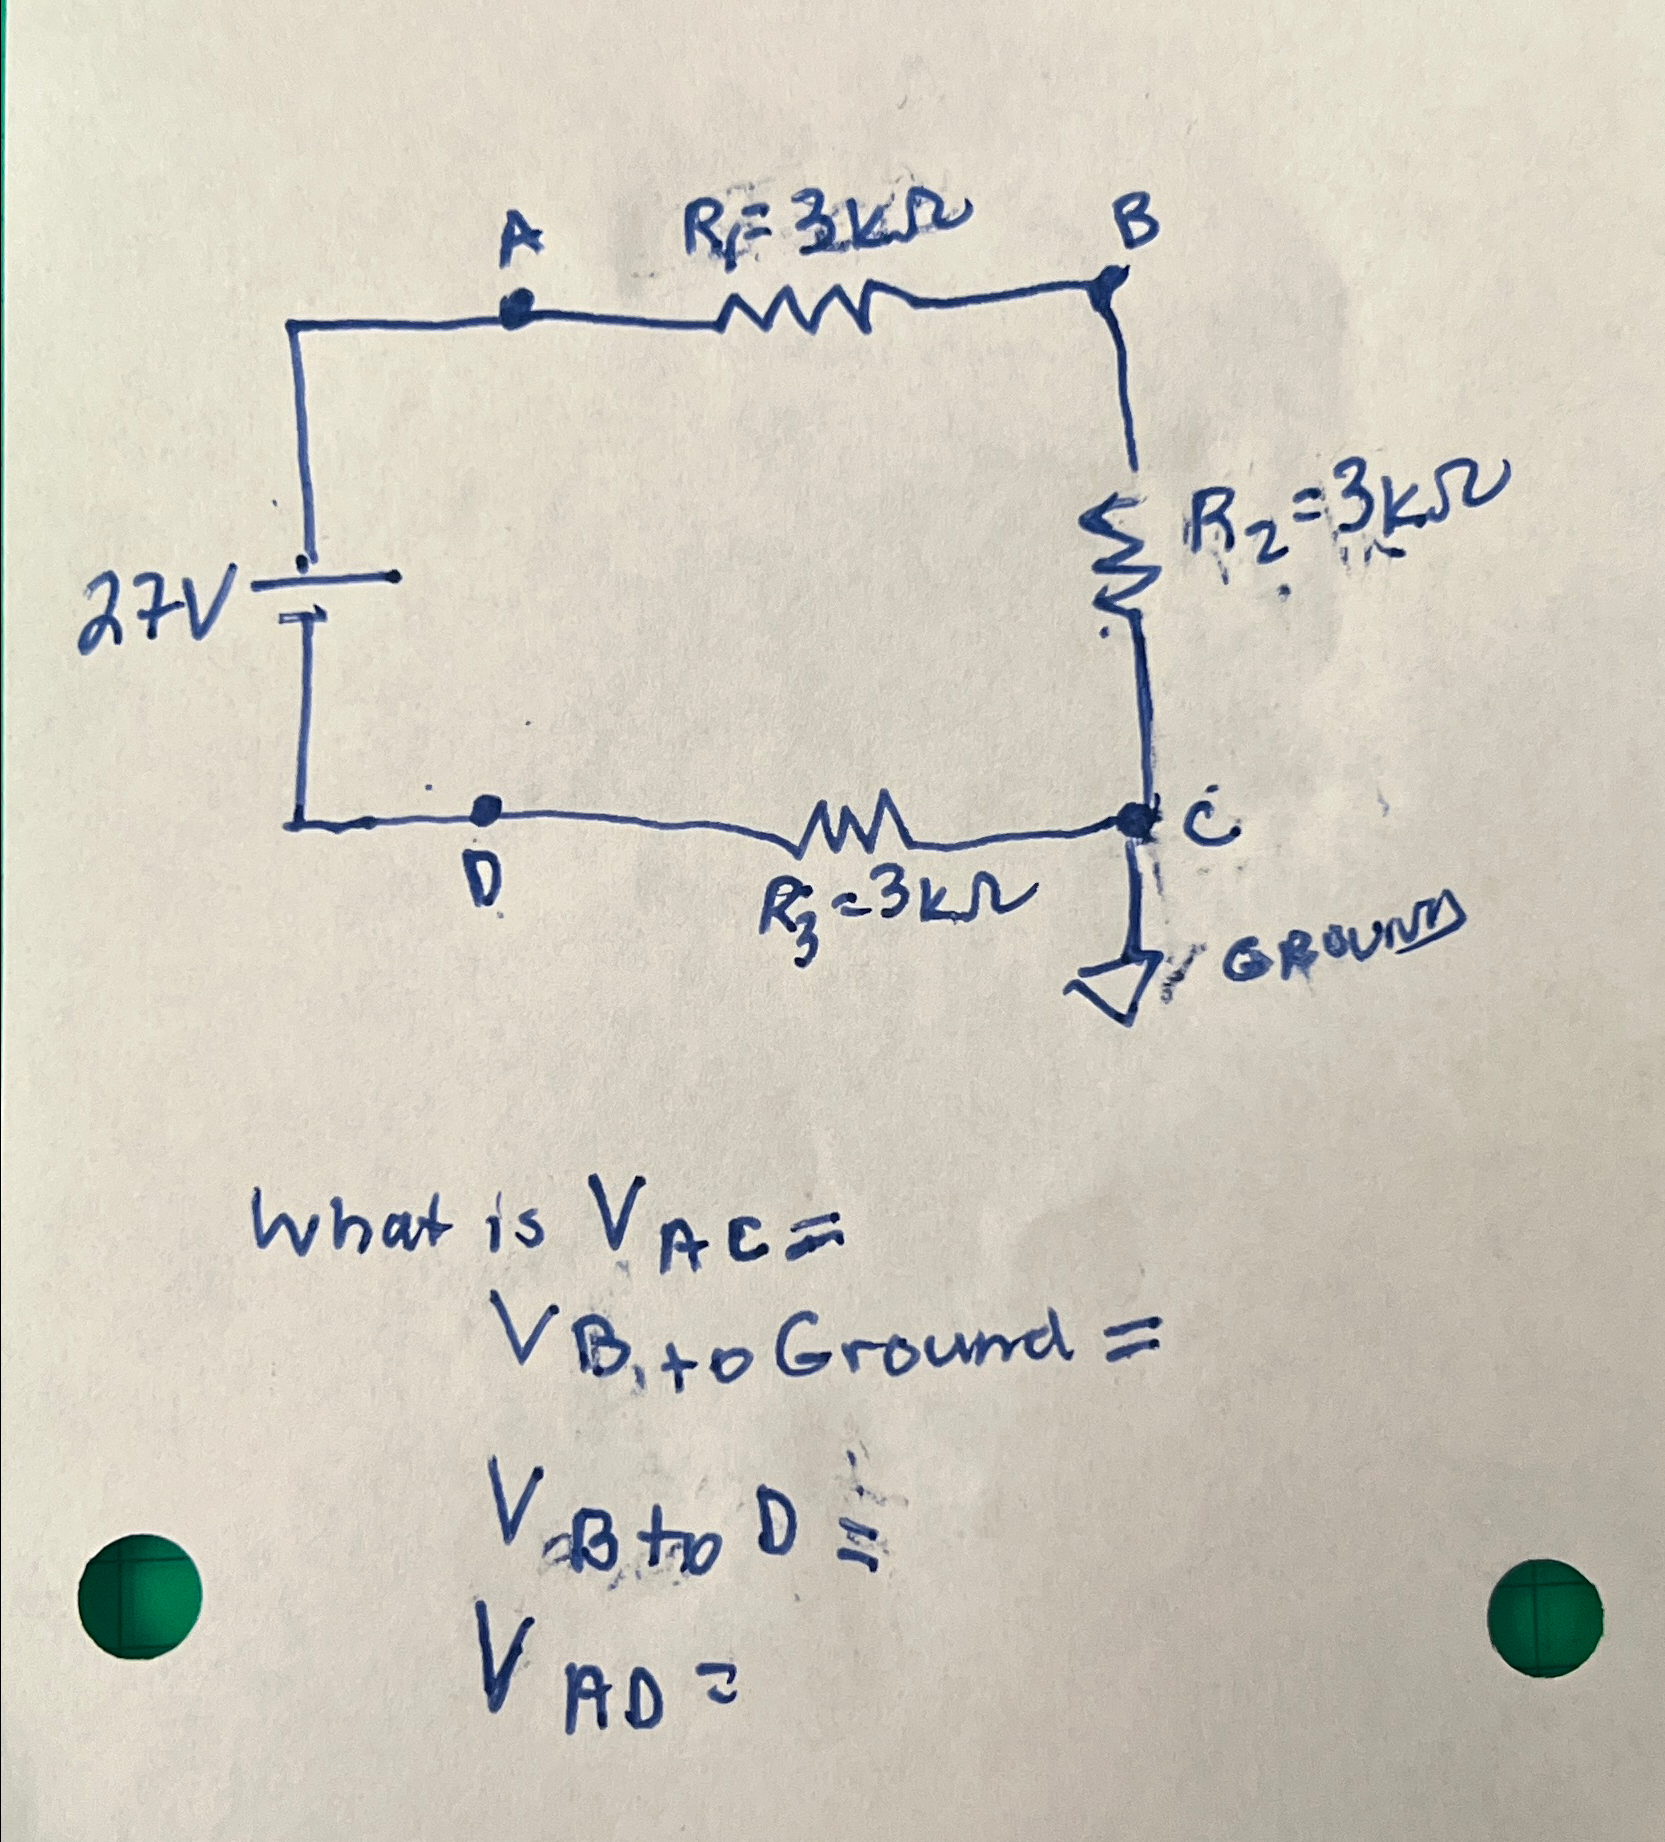 A
R₁=3kΩ
B
R₂=3kΩ
27V
D
R₃=3kΩ
C
GROUND
What is V_AC=
V_B, to Ground=
V_B to D=
V_AD=